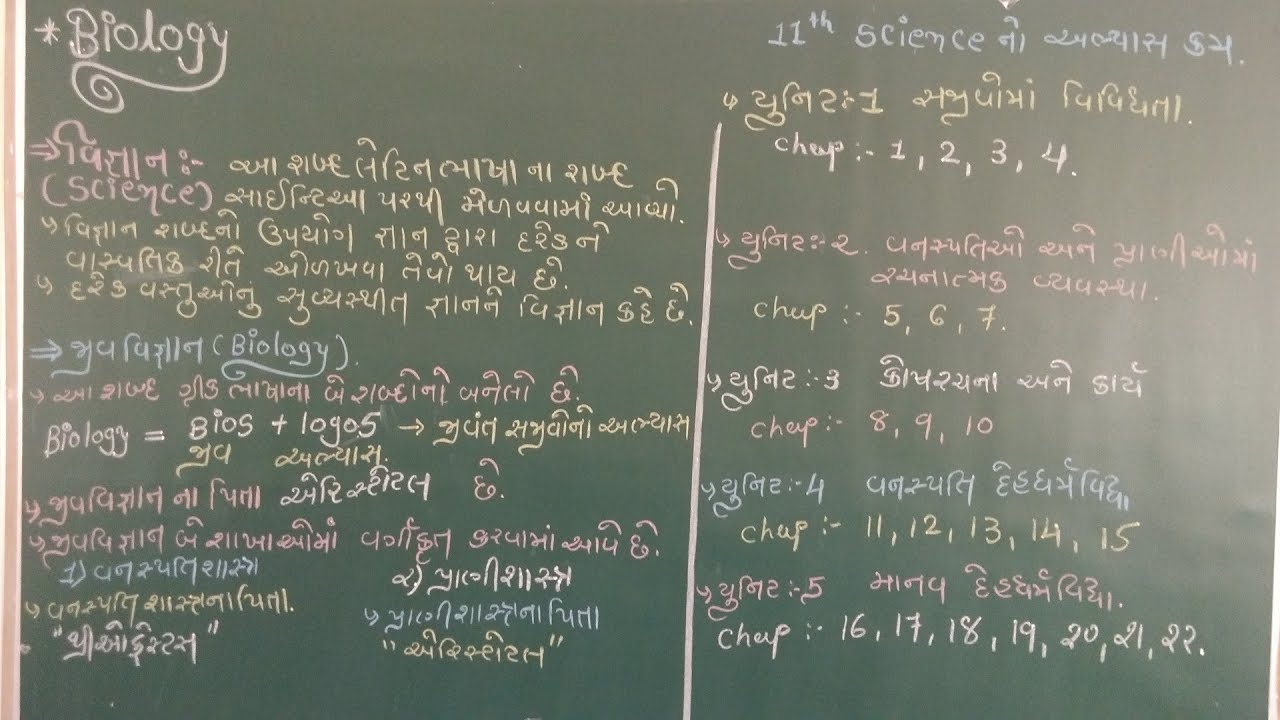 * Biology
⇒ વિજ્ઞાન :- આ શબ્દ લેટિન ભાષા ના શબ્દ
(Science) સાઈન્ટિઆ પરથી મેળવવામાં આવ્યો.
↳ વિજ્ઞાન શબ્દનો ઉપયોગ જ્ઞાન દ્વારા દરેક ને
વાસ્તવિક રીતે ઓળખવા તેવો થાય છે.
↳ દરેક વસ્તુઓનું સુવ્યસ્થીત જ્ઞાનને વિજ્ઞાન કહે છે.
⇒ જીવવિજ્ઞાન (Biology).
↳ આ શબ્દ ગ્રીક ભાષાના બે શબ્દોનો બનેલો છે.
Biology = Bios + logos → જીવંત સજીવોનો અભ્યાસ
જીવ અભ્યાસ.
↳ જીવવિજ્ઞાન ના પિતા એરિસ્ટોટલ છે.
↳ જીવવિજ્ઞાન બે શાખાઓમાં વર્ગીકૃત કરવામાં આવે છે.
1) વનસ્પતિશાસ્ત્ર ૨) પ્રાણીશાસ્ત્ર
↳ વનસ્પતિ શાસ્ત્રના પિતા. ↳ પ્રાણીશાસ્ત્રના પિતા
"થ્રીઓફ્રેસ્ટસ" "એરિસ્ટોટલ"
11th Science નો અભ્યાસ ક્રમ.
↳ યુનિટ :- 1 સજીવોમાં વિવિધતા.
chap :- 1, 2, 3, 4.
↳ યુનિટ :- ૨. વનસ્પતિઓ અને પ્રાણીઓમાં
રચનાત્મક વ્યવસ્થા.
chap :- 5, 6, 7.
↳ યુનિટ :- 3 કોષરચના અને કાર્ય
chap :- 8, 9, 10
↳ યુનિટ :- 4 વનસ્પતિ દેહધર્મવિદ્યા
chap :- 11, 12, 13, 14, 15
↳ યુનિટ :- 5 માનવ દેહધર્મવિદ્યા.
chap :- 16, 17, 18, 19, ૨0, ૨1, ૨૨.